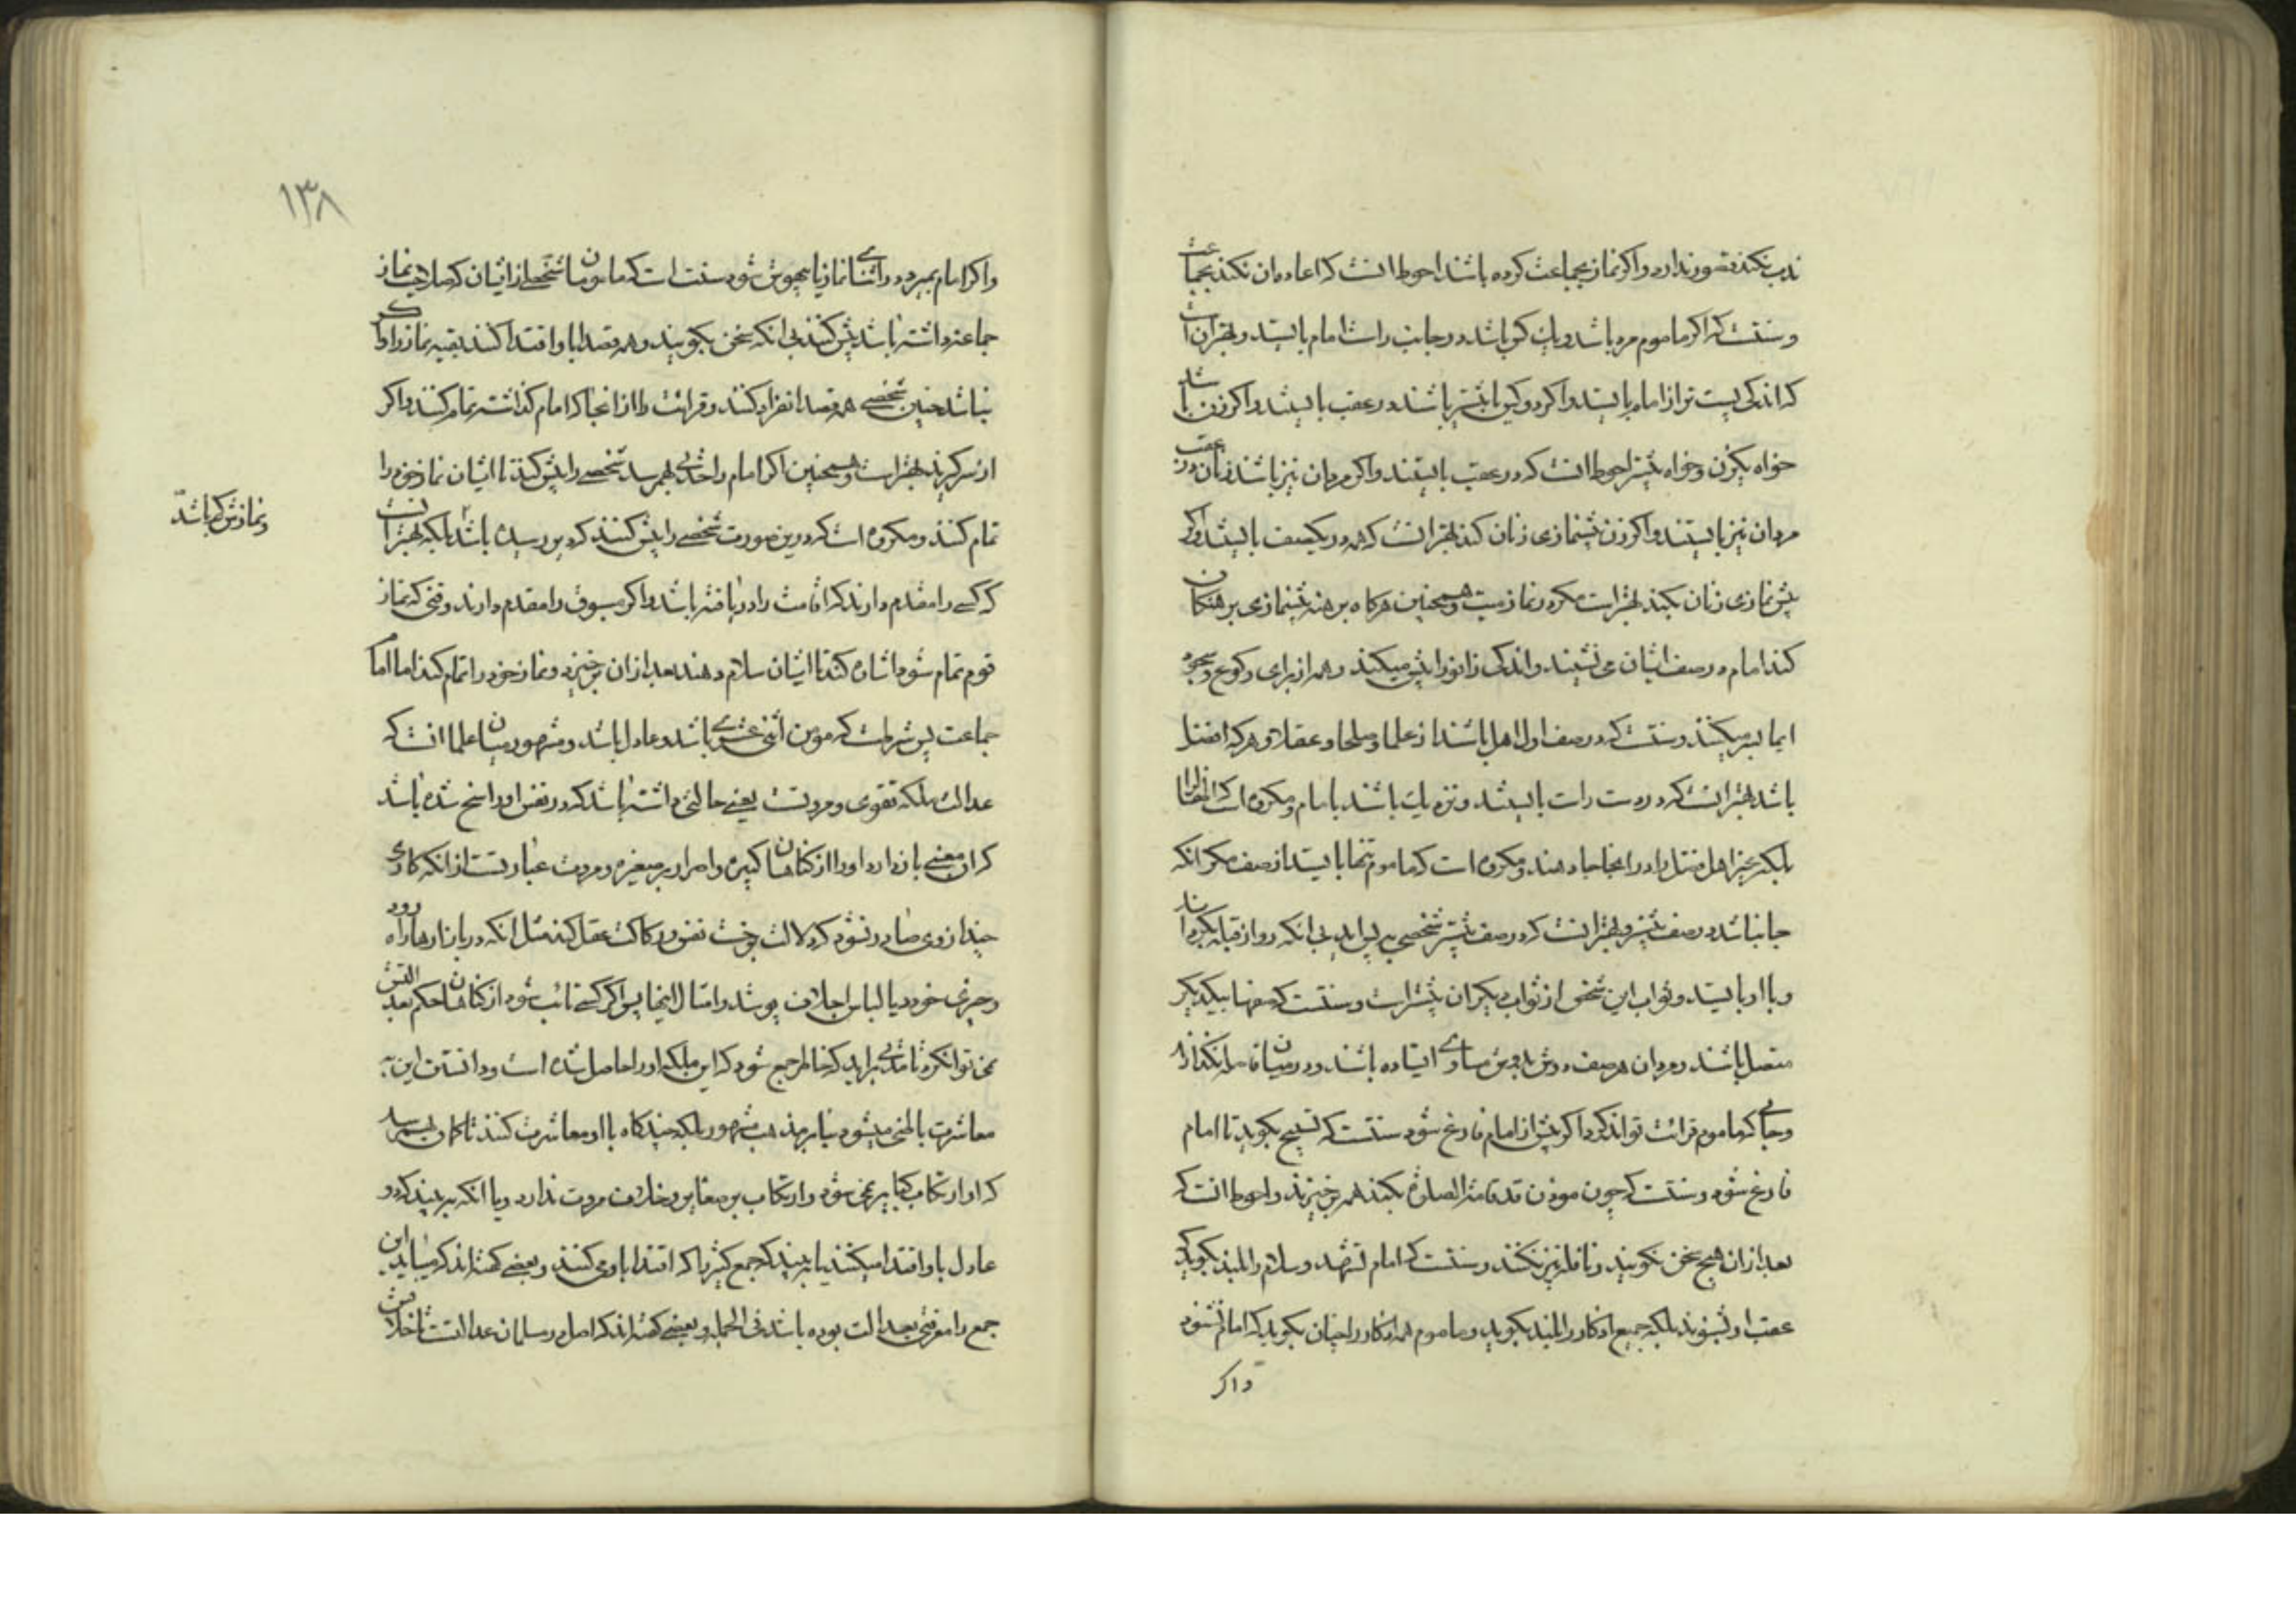 ندب نکند قصور ندارد و اکر نماز بجماعت کرده باشند احوط انست که اعاده ان نکند بجماعت
و سنتست که اکر ماموم مرد باشد و یک کس باشد در جانب راست امام بایستد و بهتر ان است
که اندکی پست تر از امام بایستد و اکر دو کس یا بیشتر باشند در عقب بایستند و اکر زن باشد
خواه یکزن و خواه بیشتر احوط انست که در عقب بایستند و اکر مردان نیز باشند زنان در عقب
مردان نیز بایستند و اکر زن پیشنمازی زنان کند بهتر انست که همه در یکصف بایستند و اکر
پیش نمازی زنان نکند بهتر است مکر در نماز میت و همچنین هرکاه برهنه پیشنمازی برهنکان
کند امام در صف ایشان می نشیند و اندکی زانو را پیش میکند و همه از برای رکوع و سجود
ایما بسر میکنند و سنتست که در صف اول اهل باشند از علما و صلحا و عقلا و هر که افضل
باشد بهتر انست که در دست راست بایستند و نزدیک باشند بامام و مکروه است که اطفال را
بلکه غیر اهل فضل را در انجا جا دهند و مکروه است که ماموم تنها بایستد از صف مکر انکه
جا نباشد در صف پیشتر و بهتر انست که در صف پیشتر شخصی به پس اید بی انکه رو از قبله بکرداند
و با او بایستد و ثواب این شخص از ثواب دیکران بیشتر است و سنتست که صفها بیکدیکر
متصل باشند و مردان هر صف دوش بدوش مساوی ایستاده باشند و در میان فاصله نکذارند
و جائی که ماموم قرائت تواند کرد اکر پیش از امام فارغ شود سنتست که تسبیح بکوید تا امام
فارغ شود و سنتست که چون موذن قد قامت الصلوة بکند همه برخیزند و احوط انست که
بعد از ان هیچ سخن نکویند و نافله نیز نکنند و سنتست که امام تشهد و سلام را بلند بکوید که
عقب او بشنوند بلکه جمیع اذکار را بلند بکوید و ماموم همه اذکار را چنان بکوید که امام نشنود
و اکر
۱۳۸
و اکر امام بمیرد در اثنای نماز یا بیهوش شود سنت است که مامومان شخصی از ایشان که صلاحیت نماز
جماعت داشته باشد پیش کنند بی انکه سخن بکویند و همه قصد اباو اقتدا کنند بقیه نماز را و اکر
نباشد چنین شخصی همه قصد انفراد کنند و قرائت را از انجا که امام کذاشته تمام کنند و اکر
از سر کیرند بهتر است و همچنین اکر امام را حدثی بهم رسد شخصی را پیش کند تا ایشان نماز خود را
تمام کنند و مکروه است که درین صورت شخصی را پیش کنند که دیر رسیده باشد بلکه بهتر انست
که کسی را مقدم دارند که اقامت را دریافته باشد و اکر مسبوق را مقدم دارند وقتی که نماز
و نمازش کم باشد
قوم تمام شود اشاره کند تا ایشان سلام دهند بعد از ان برخیزد و نماز خود را تمام کند اما امام
جماعت پس شرطست که مؤمن اثنی عشری باشد و عادل باشد و مشهور میان علما انست که
عدالت ملکه تقوی و مروتست یعنی حالتی داشته باشد که در نفس او راسخ شده باشد
که ان معنی باز دارد او را از کناهان کبیره و اصرار بر صغیره و مروت عبارتست از انکه کاری
چند از وی صادر نشود که دلالت بر خست نفس و رکاکت عقل کند مثل انکه در بازارها راه رود
و چیزی خورد یا لباس اجلاف پوشد و امثال اینها پس اکر کسی تائب شود از کناهان حکم بعدالتش
نمی توان کرد تا مدتی براید که خاطر جمع شود که این ملکه او را حاصل شده است و دانستن این به
معاشرت باطنی میشود بنابر مذهب مشهور بلکه چندکاه با او معاشرت کنند تا بهم رسد
که او ارتکاب کبایر نمی شود و ارتکاب بر صغایر و خلاف مروت ندارد و یا انکه ببیند که دو
عادل باو اقتدا میکنند یا ببیند که جمع کثیر پاک اقتدا باو می کنند و بعضی کفته اند که میباید این
جمع را معرفتی بعدالت بوده باشد فی الجمله و بعضی کفته اند که اصل در مسلمان عدالتست تا خلافش